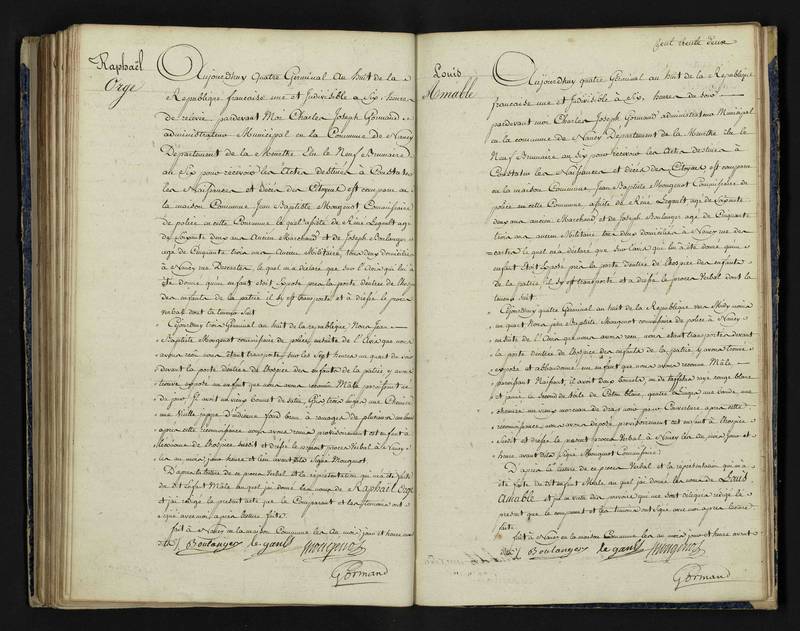 Raphaël
Orge
Aujourdhuy quatre Germinal au huit de la
République francaise une et Indivisible a Six heures
de relevée pardevant Moi Charles Joseph Gormand
administrateur Municipal en la Commune de Nancy
Département de la Meurthe Elu le Neuf Brumaire
au Six pour recevoir les Actes destinés à Constater
les Naissances et décès des Citoyens est comparu en
la maison Commune Jean Baptiste Mougenot Commissaire
de police en cette Commune lequel assisté de Réné Legault agé
de Soixante deux ans ancien Marchand et de Joseph Boulanger
agé de Cinquante trois ans ancien Militaire, tous deux domiciliés
à Nancy me Decartes, lequel m'a déclaré que sur l'avis qui lui a
été donné qu'un enfant etoit Exposé près la porte dentrée de l'hospice
des enfants de la patrie il s'y est transporté et a dressé le procès
verbal dont la teneur suit
Cejourdhuy trois Germinal au huit de la république Nous Jean
Baptiste Mougenot commissaire de police, ensuite de l'avis que nous
avons reçu nous étant transporté sur les Sept heures un quart du soir
devant la porte dentrée de l'hospice des enfants de la patrie y avons
trouvé exposé un enfant que nous avons reconnu Mâle paroissant né
du jour, il avoit un vieux bonnet de satin, trois linges une Chemise
une Vieille juppe d'indienne fond brun à ramages de plusieurs couleurs
après cette reconnoissance nous avons remis provisoirement cet enfant à
l'hospice susdit et dressé le présent procès verbal à Nancy
les an mois jour heure et lieu avant dits Signé Mougenot
D'après la lecture de ce procès verbal et la représentation qui m'a été faite
de dit Enfant Mâle auquel j'ai donné les noms de Raphaël Orge
et j'ai rédigé le présent acte que le Comparant et les témoins ont
signé avec moi après lecture faite
fait à Nancy en la maison Commune les An mois jour et heure avant
dits J Boulanger le gault Mougenot
Gormand
Cent trente deux
Louis
Amable
Aujourdhuy quatre Germinal au huit de la République
francaise une et Indivisible à Six heures du soir
pardevant moi Charles Joseph Gormand administrateur Municipal
en la commune de Nancy Département de la Meurthe élu le
Neuf Brumaire au Six pour recevoir les Actes destinés à
Constater les Naissances et décès des Citoyens est comparu
en la maison Commune Jean Baptiste Mougenot Commissaire de
police en cette Commune, assisté de Réné Legault agé de Soixante
deux ans ancien Marchand et de Joseph Boulanger agé de Cinquante
trois ans ancien Militaire tous deux domiciliés à Nancy me
lequel m'a déclaré que sur l'avis qui lui a été donné qu'un
enfant étoit Exposé près la porte dentrée de l'hospice des enfants
de la patrie, il s'y est transporté et a dressé le procès verbal dont la
teneur suit
Cejourdhuy quatre Germinal au huit de la République
un quart Nous Jean Baptiste Mougenot commissaire de police à Nancy
ensuite de l'avis que nous avons reçu nous étant transporté devant
la porte dentrée de l'hospice des enfants de la patrie y avons trouvé
exposé et abandonné un enfant que nous avons reconnu Mâle
paroissant Naissant, il avoit deux bonnets un de taffetas rayé rouge blanc
et jaune, le Second de toile de Coton blanc, quatre linges une bande une
chemise un vieux morceau de drap pour Couverture après cette
reconnoissance nous avons déposé provisoirement cet enfant à l'hospice
Susdit et dressé le présent procès Verbal à Nancy les an mois jour et
heure avant dits Signé Mougenot Commissaire
D'après la lecture de ce procès Verbal et la représentation qui m'a
été faite de dit Enfant Mâle auquel j'ai donné les noms de Louis
Amable
présent que le comparant et les témoins ont signé avec moi après lecture
faite
fait à Nancy en la maison Commune les an mois jour et heure avant
dits J Boulanger le gault Mougenot
Gormand